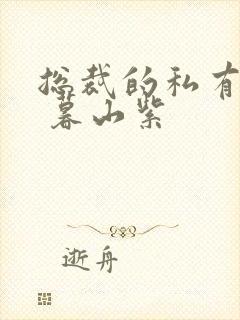 总裁的私有
暮山紫
逝舟